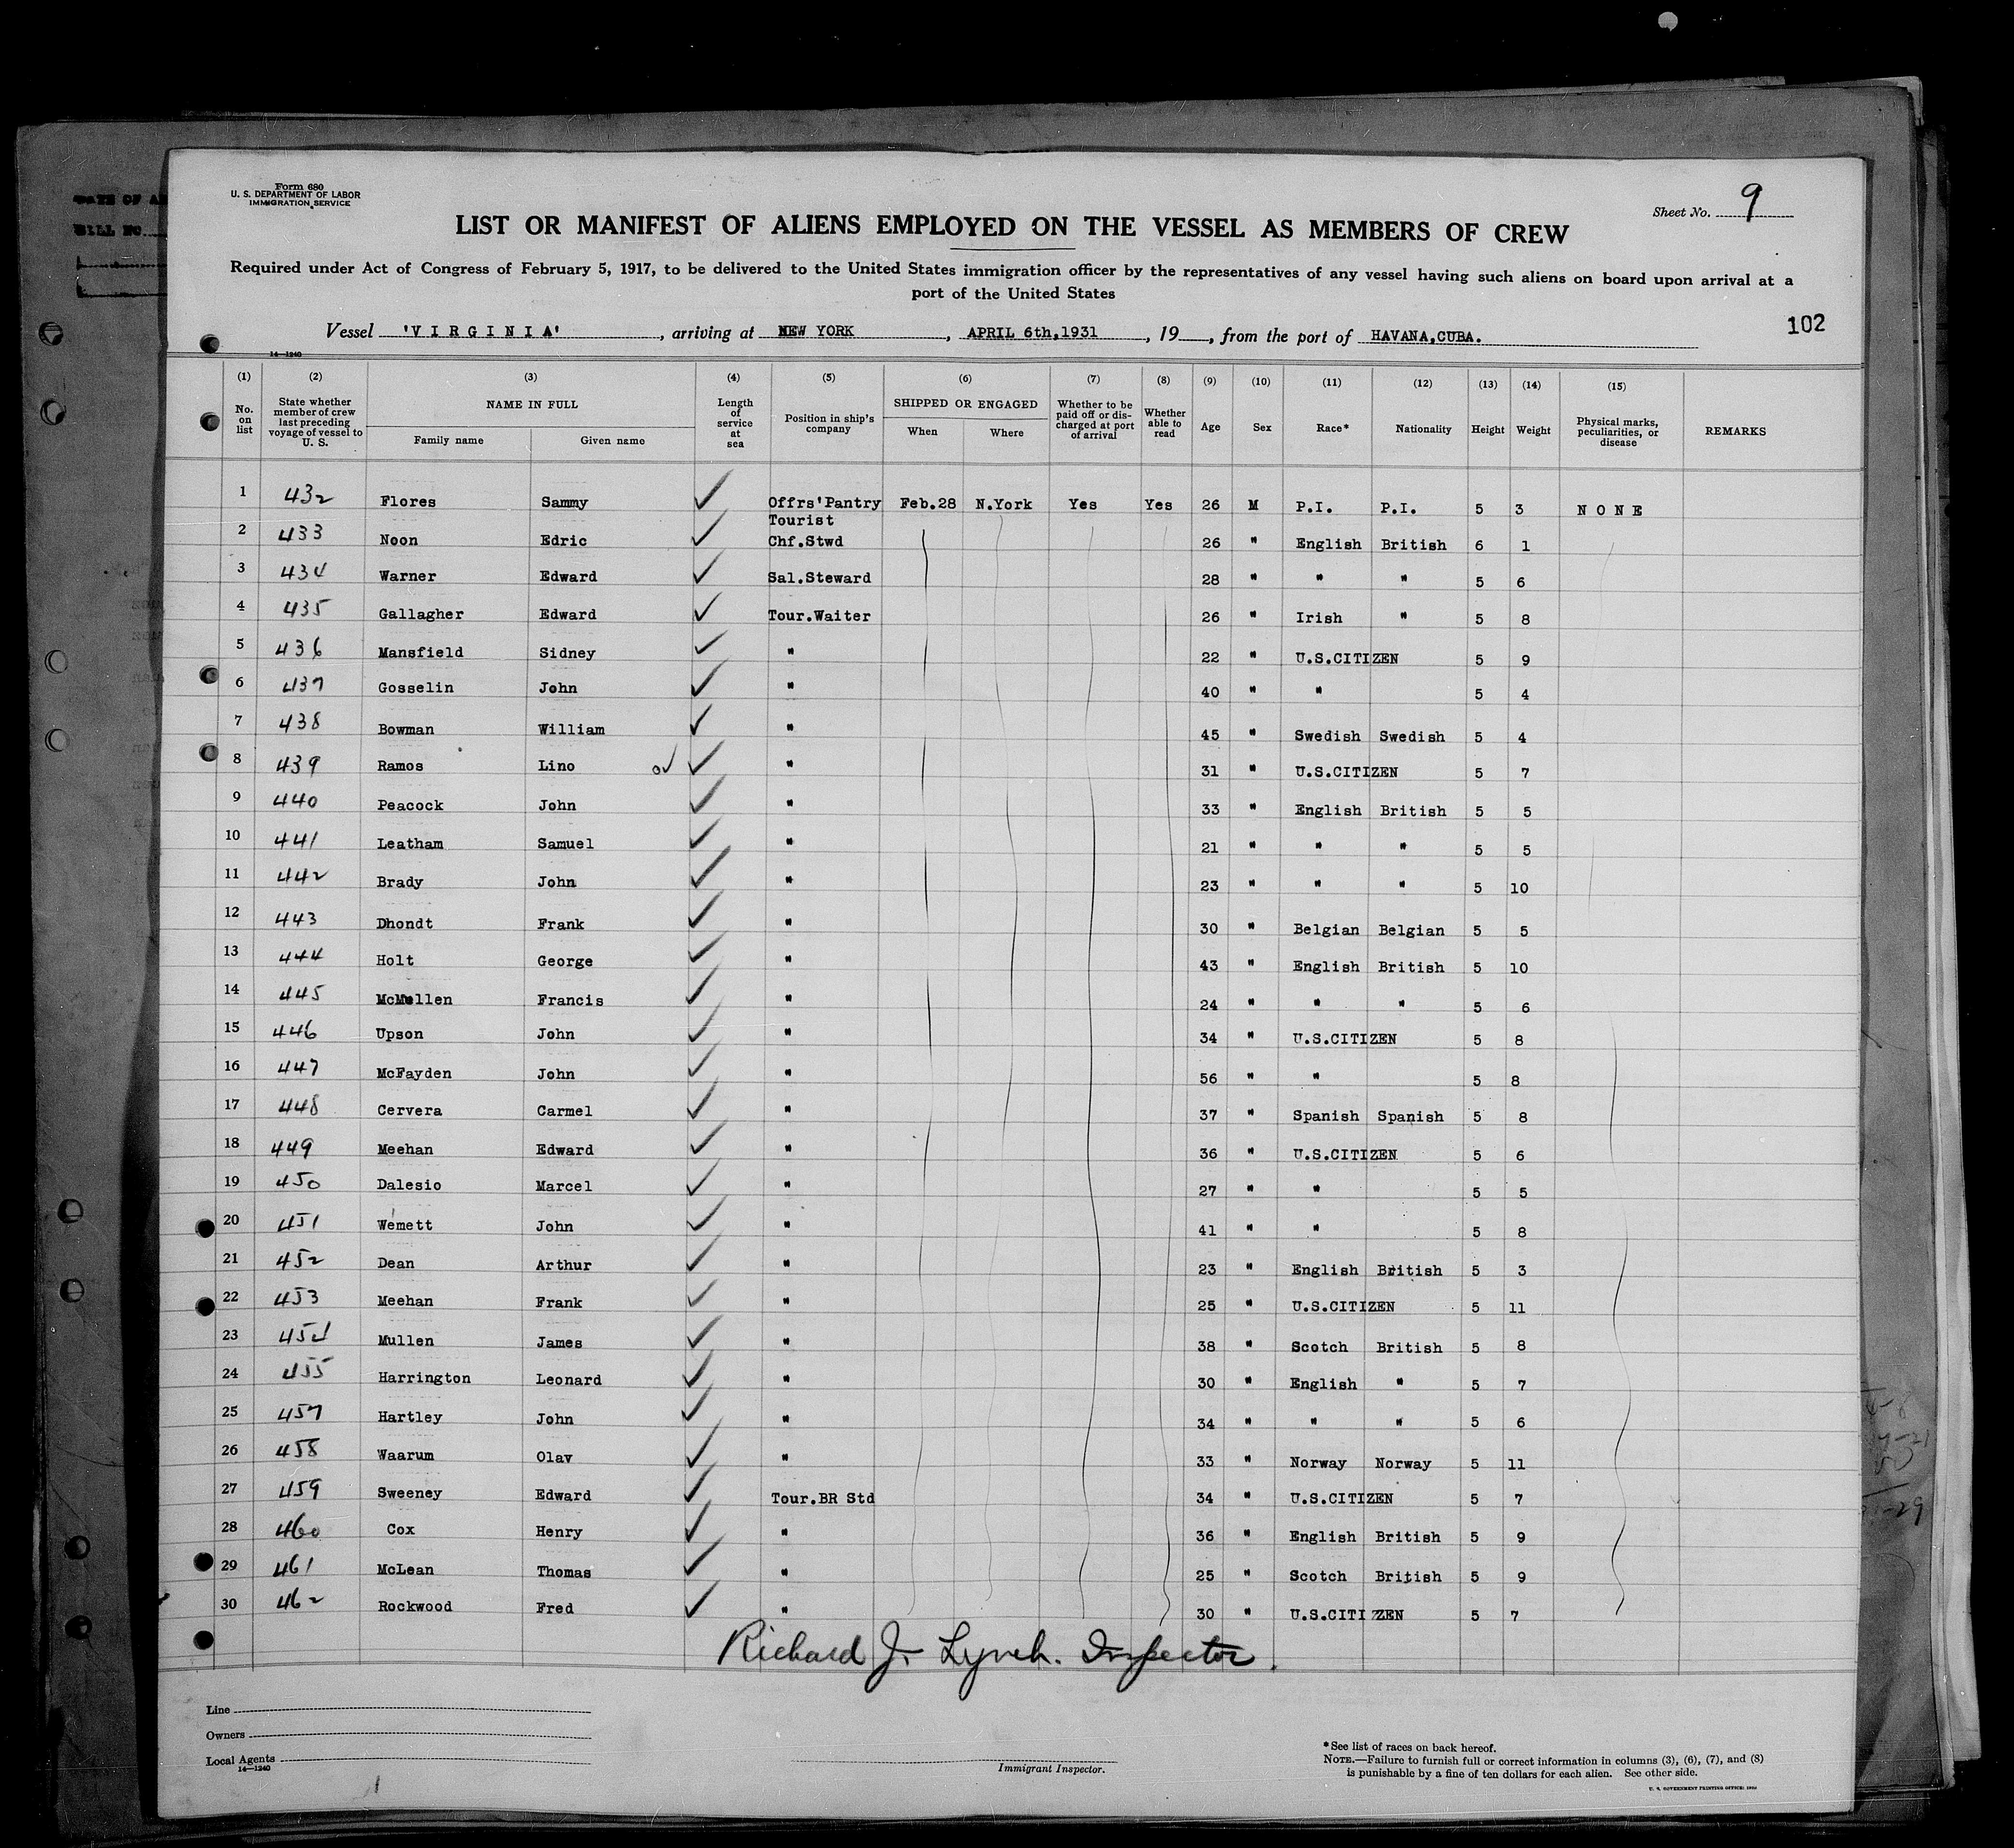 Form 680
U. S. DEPARTMENT OF LABOR
IMMIGRATION SERVICE
Sheet No. 9
LIST OR MANIFEST OF ALIENS EMPLOYED ON THE VESSEL AS MEMBERS OF CREW
Required under Act of Congress of February 5, 1917, to be delivered to the United States immigration officer by the representatives of any vessel having such aliens on board upon arrival at a
port of the United States
102
Vessel 'VIRGINIA', arriving at NEW YORK, APRIL 6th,1931, 19, from the port of HAVANA,CUBA.
14—1240
(1) (2) (3) (4) (5) (6) (7) (8) (9) (10) (11) (12) (13) (14) (15)
No. on list State whether member of crew last preceding voyage of vessel to U. S. NAME IN FULL Family name Given name Length of service at sea Position in ship's company SHIPPED OR ENGAGED When Where Whether to be paid off or discharged at port of arrival Whether able to read Age Sex Race* Nationality Height Weight Physical marks, peculiarities, or disease REMARKS
1 432 Flores Sammy ✓ Offrs'Pantry Feb.28 N.York Yes Yes 26 M P.I. P.I. 5 3 NONE
2 433 Noon Edric ✓ Tourist Chf.Stwd 26 " English British 6 1
3 434 Warner Edward ✓ Sal.Steward 28 " " " 5 6
4 435 Gallagher Edward ✓ Tour.Waiter 26 " Irish " 5 8
5 436 Mansfield Sidney ✓ " 22 " U.S.CITIZEN 5 9
6 437 Gosselin John ✓ " 40 " " 5 4
7 438 Bowman William ✓ " 45 " Swedish Swedish 5 4
8 439 Ramos Lino ✓ " 31 " U.S.CITIZEN 5 7
9 440 Peacock John ✓ " 33 " English British 5 5
10 441 Leatham Samuel ✓ " 21 " " " 5 5
11 442 Brady John ✓ " 23 " " " 5 10
12 443 Dhondt Frank ✓ " 30 " Belgian Belgian 5 5
13 444 Holt George ✓ " 43 " English British 5 10
14 445 McMullen Francis ✓ " 24 " " " 5 6
15 446 Upson John ✓ " 34 " U.S.CITIZEN 5 8
16 447 McFayden John ✓ " 56 " " 5 8
17 448 Cervera Carmel ✓ " 37 " Spanish Spanish 5 8
18 449 Meehan Edward ✓ " 36 " U.S.CITIZEN 5 6
19 450 Dalesio Marcel ✓ " 27 " " 5 5
20 451 Wemett John ✓ " 41 " " 5 8
21 452 Dean Arthur ✓ " 23 " English British 5 3
22 453 Meehan Frank ✓ " 25 " U.S.CITIZEN 5 11
23 454 Mullen James ✓ " 38 " Scotch British 5 8
24 455 Harrington Leonard ✓ " 30 " English " 5 7
25 457 Hartley John ✓ " 34 " " " 5 6
26 458 Waarum Olav ✓ " 33 " Norway Norway 5 11
27 459 Sweeney Edward ✓ Tour.BR Std 34 " U.S.CITIZEN 5 7
28 460 Cox Henry ✓ " 36 " English British 5 9
29 461 McLean Thomas ✓ " 25 " Scotch British 5 9
30 462 Rockwood Fred ✓ " 30 " U.S.CITIZEN 5 7
Richard J. Lynch. Inspector.
Line
Owners
Local Agents
14—1240
Immigrant Inspector.
*See list of races on back hereof.
NOTE.—Failure to furnish full or correct information in columns (3), (6), (7), and (8)
is punishable by a fine of ten dollars for each alien. See other side.
U. S. GOVERNMENT PRINTING OFFICE: